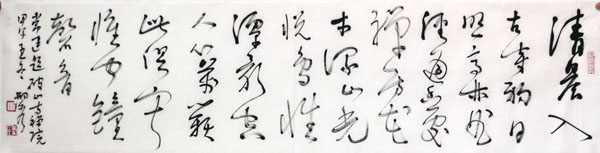 清晨入
古寺初日
照高林曲
徑通幽處
禪房花
木深山光
悦鳥性
潭影空
人心萬籟
此俱寂
惟餘鐘
磬音
常建題破山寺禪院
甲午